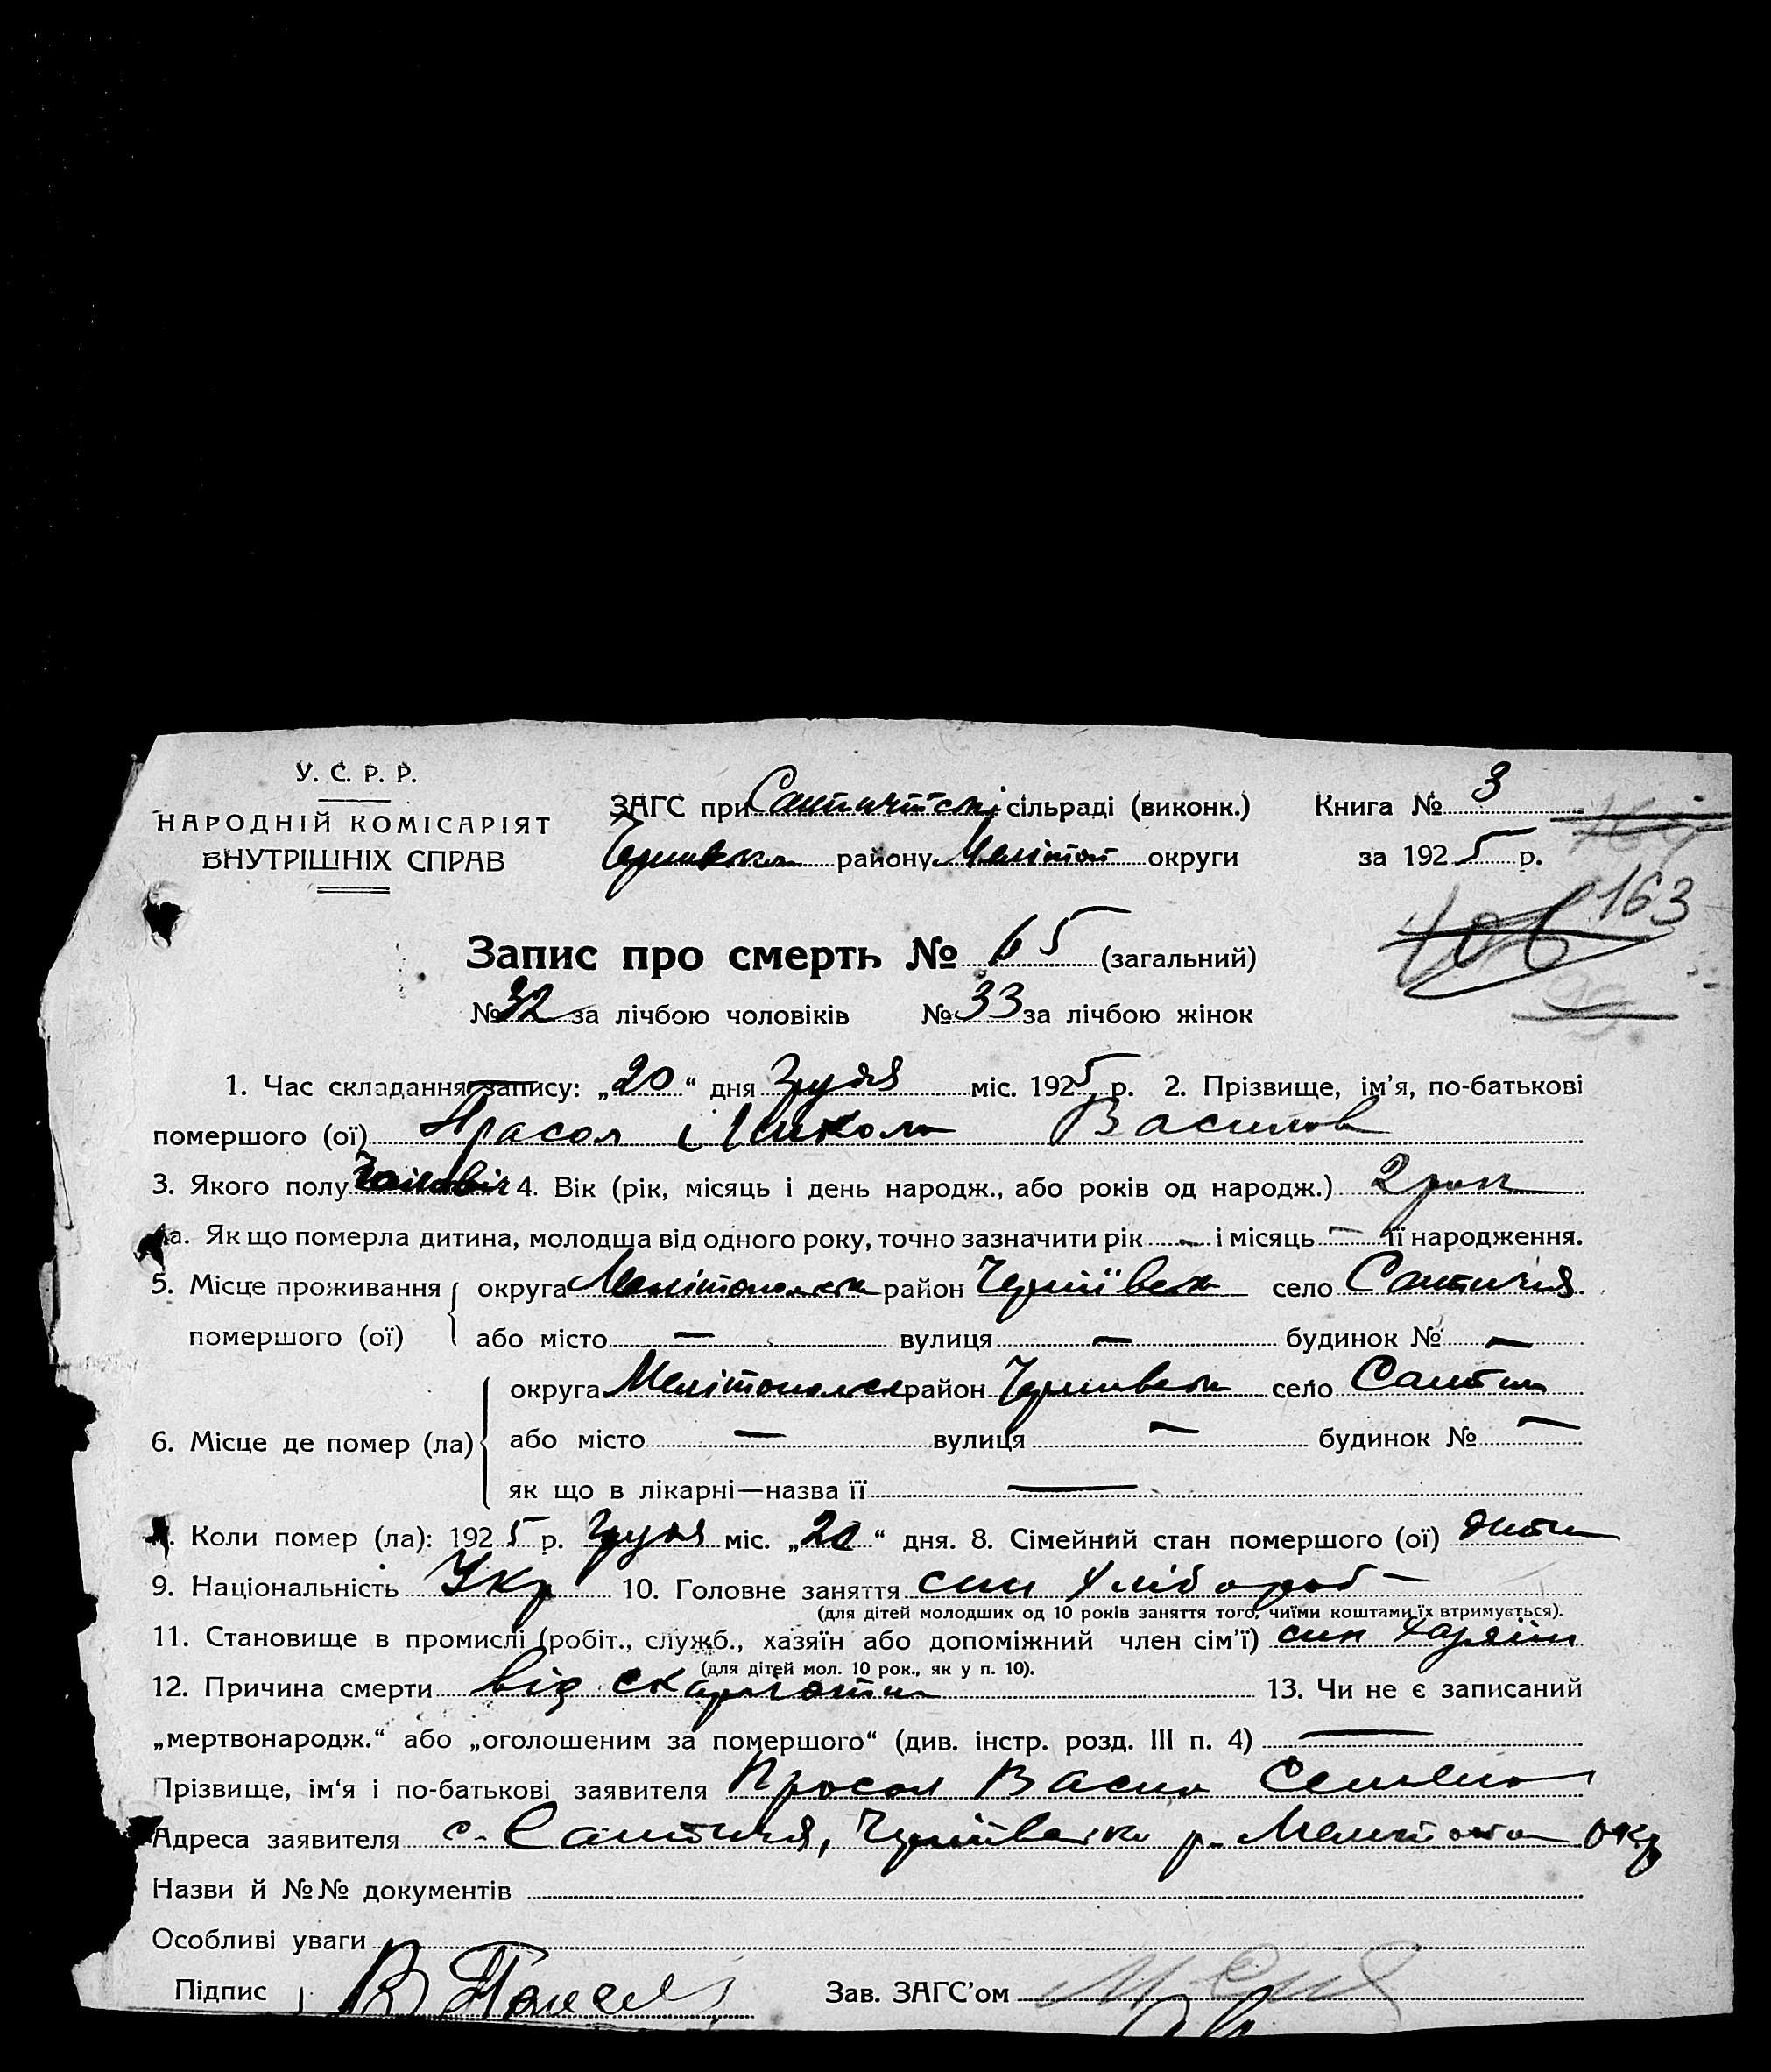 У. С. Р. Р.
НАРОДНІЙ КОМІСАРІЯТ
ВНУТРІШНІХ СПРАВ
ЗАГС при сільраді (виконк.) Книга № 3
району Меліт округи за 1925 р.
163
Запис про смерть № 65 (загальний)
№ 32 за лічбою чоловіків № 33 за лічбою жінок
1. Час складання запису: „20“ дня Грудня міс. 1925 р. 2. Прізвище, ім'я, по-батькові
помершого (ої) Прасол Микола Василов
3. Якого полу 4. Вік (рік, місяць і день народж., або років од народж.) 2 рок
4а. Як що померла дитина, молодша від одного року, точно зазначити рік — і місяць — її народження.
5. Місце проживання округа Мелітопольськ район село
помершого (ої) або місто — вулиця — будинок № —
округа Мелітопольськ район село
6. Місце де помер (ла) або місто — вулиця — будинок № —
як що в лікарні—назва її —
Коли помер (ла): 1925 р. Грудня міс. „20“ дня. 8. Сімейний стан помершого (ої) дитин
9. Національність Укр 10. Головне заняття син хлібороб
(для дітей молодших од 10 років заняття того, чиїми коштами їх втримується).
11. Становище в промислі (робіт., служб., хазяїн або допоміжний член сім'ї) син хазяїн
(для дітей мол. 10 рок., як у п. 10).
12. Причина смерти від скарлотин 13. Чи не є записаний
„мертвонародж.“ або „оголошеним за помершого“ (див. інстр. розд. III п. 4) —
Прізвище, ім'я і по-батькові заявителя Просол Васил Семено
Адреса заявителя с. р. окр
Назви й №№ документів
Особливі уваги
Підпис Зав. ЗАГС'ом